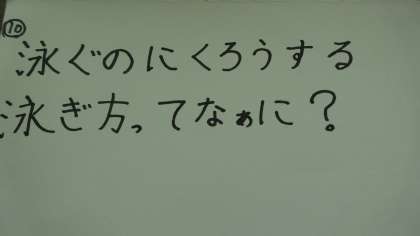 ⑩
泳ぐのにくろうする
泳ぎ方って なぁに?